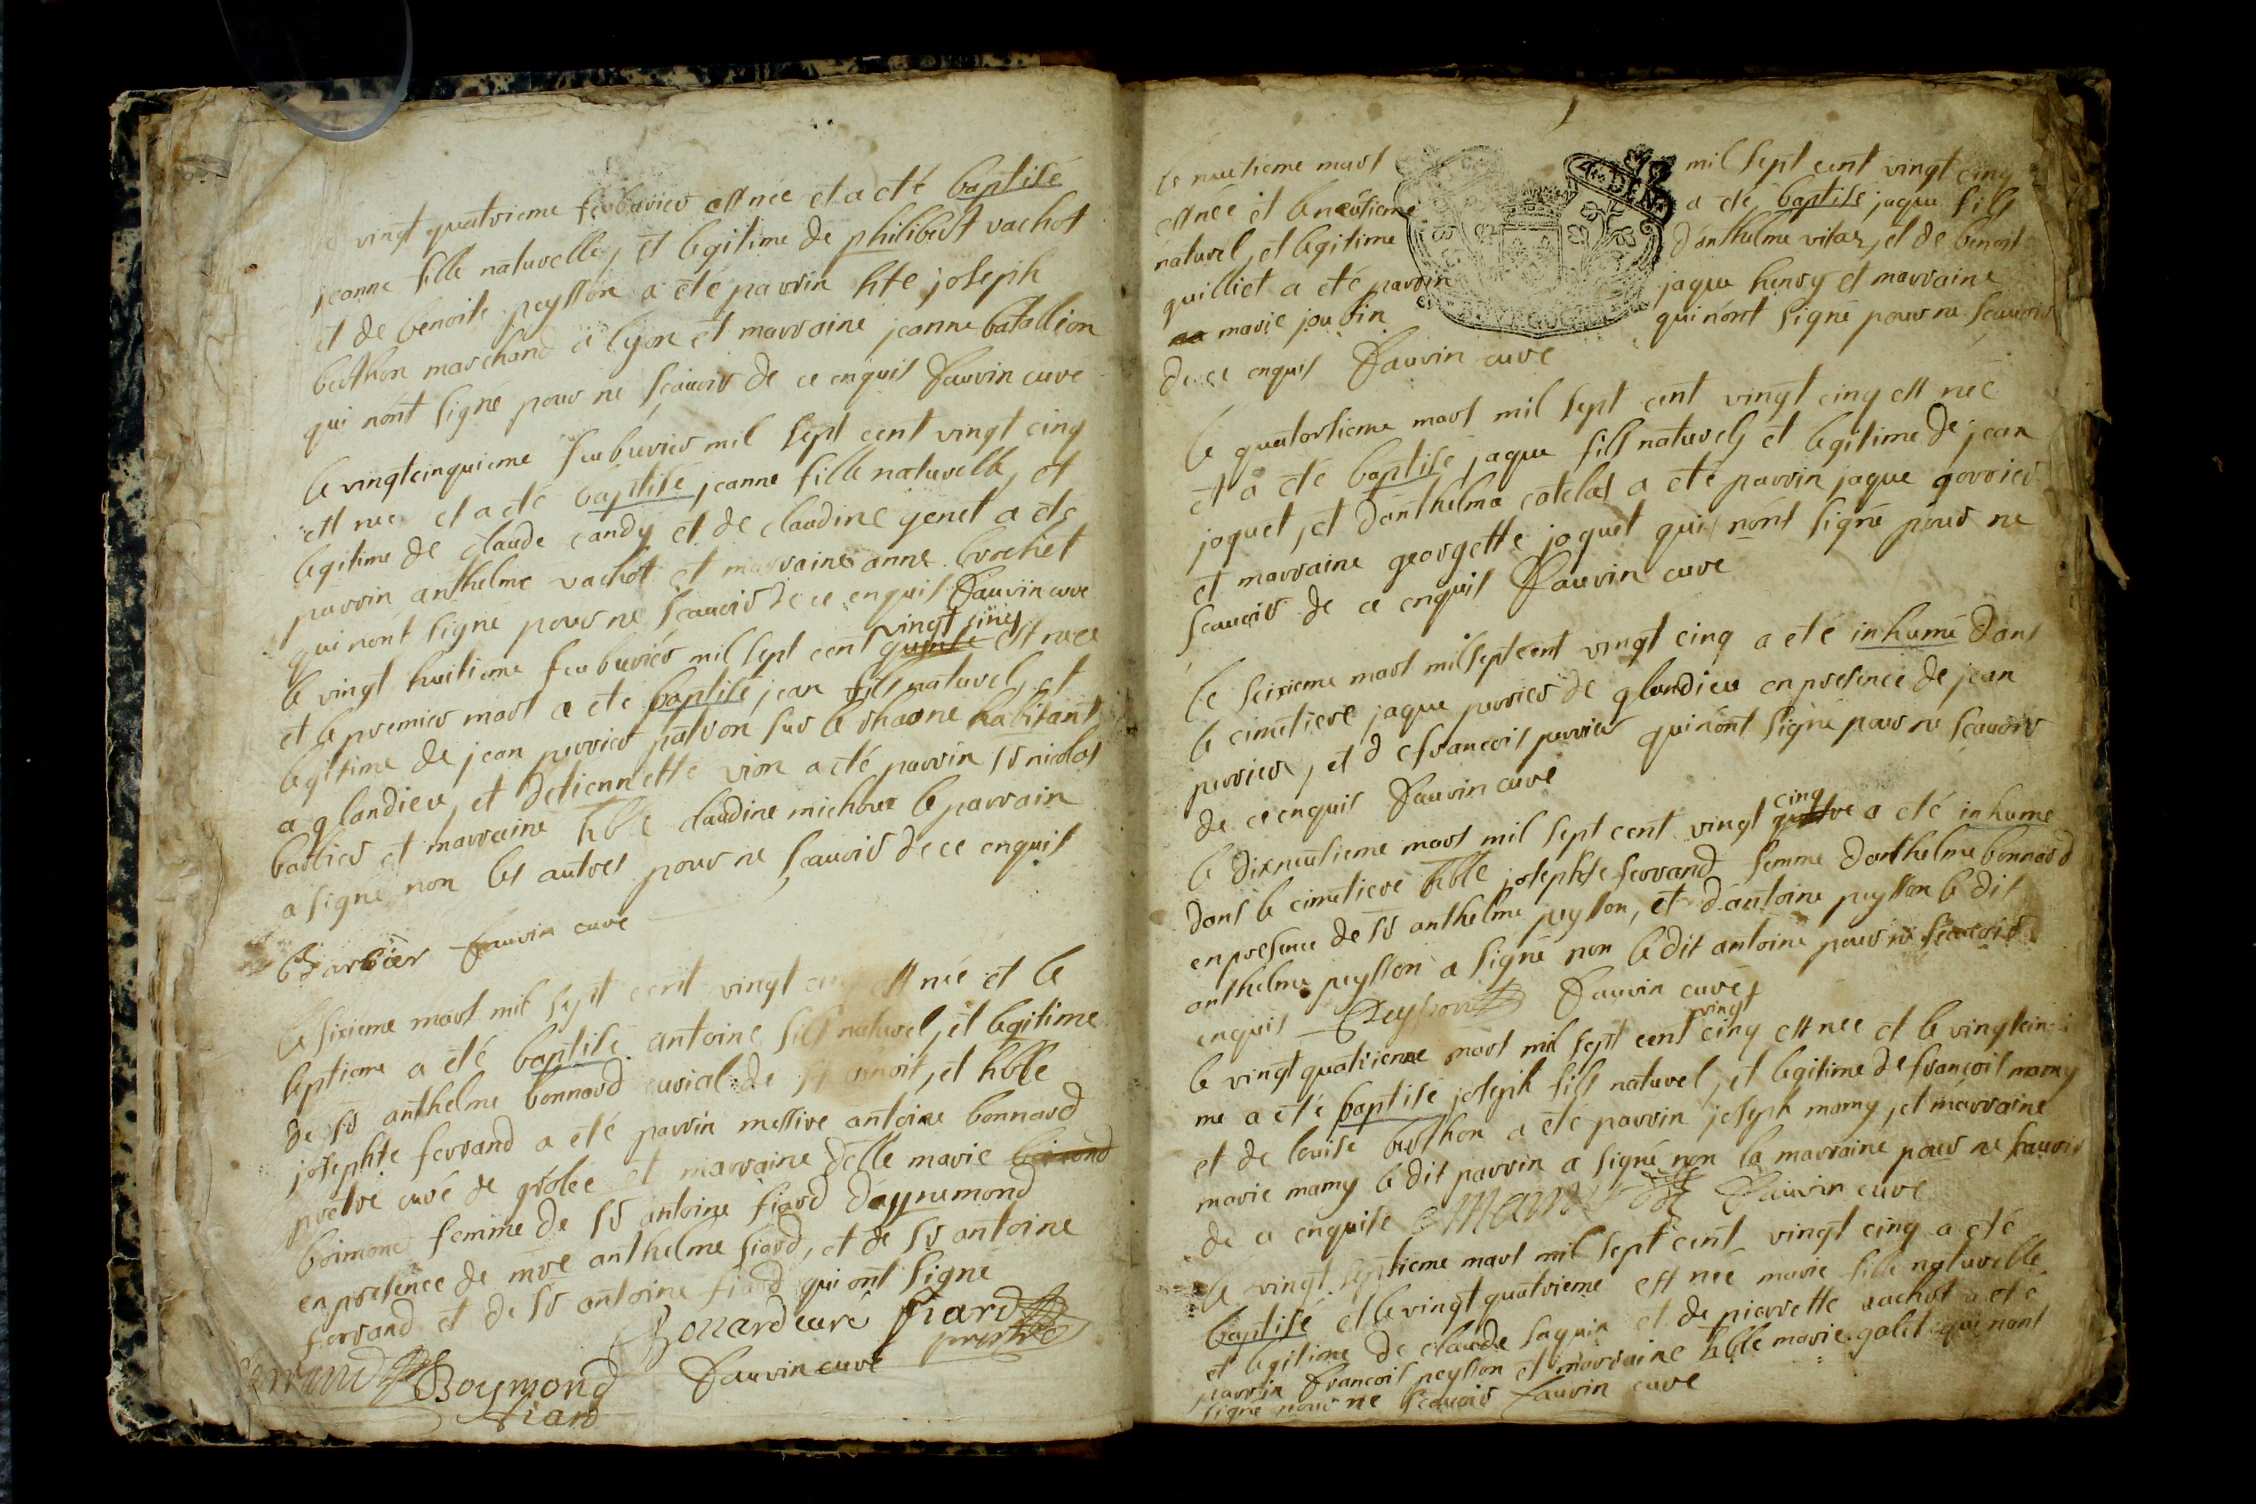 vingt quatrieme feubvrier est née et a eté baptisé
jeanne fille naturelle, et legitime de philibert vachot
et de benoite peysson a eté parrin hte joseph
berthon marchand a lyon et marraine jeanne batallion
qui nónt signé pour ne scauoir de ce enquis Fauvin curé
le vingtcinquieme feubvrier mil sept cent vingt cinq
est née et a eté baptisé jeanne fille naturelle, et
legitime de claude candy et de claudine genet a eté
parrin anthelme vachot et marraine anne brochet
qui nónt signé pour ne scauoir de ce enquis Fauvin curé
le vingt huitieme feubvrier mil sept cent vingt cinq est née
et le premier mars a eté baptisé jean fils naturel, et
legitime de jean perrier patron sur le rhaone habitant
a glandieu, et detiennette vion a eté parrin sr nicolas
barbier et marraine hble claudine michoux le parrain
a signé non les autres pour ne scauoir de ce enquis
Barbier Fauvin curé
le sixieme mars mil sept cent vingt cinq est née et le
septieme a eté baptisé antoine fils naturel, et legitime
de sr anthelme bonnard curial de st benoit, et hble
josephte ferrand a eté parrin messire antoine bonnard
pretre curé de grólée et marraine delle marie boimond
boimond femme de sr antoine fiard d'aynemond
en presence de mre anthelme fiard, et de sr antoine
ferrand et de sr antoine fiard qui ont signé
Bonard curé fiard
prestre
ferrand Boymond Fauvin curé
fiard
1
le neutieme mars mil sept cent vingt cinq
est née et le neutieme a eté baptisé jaque fils
naturel, et legitime d'anthelme vitaz, et de benoit
quilliet a eté parrin jaque henry et marraine
marie joubin qui nónt signé pour ne scauoir
de ce enquis Fauvin curé
le quatorsieme mars mil sept cent vingt cinq est née
et a eté baptisé jaque fils naturel, et legitime de jean
joquet, et d'anthelma cotelas a eté parrin jaque gorrier
et marraine georgette joquet qui nónt signé pour ne
scauoir de ce enquis Fauvin curé
le seixieme mars mil sept cent vingt cinq a eté inhumé dans
le cimetiere jaque perrier de glandieu en presence de jean
perrier, et de francois perrier qui nónt signé pour ne scauoir
de ce enquis Fauvin curé
le dixneutieme mars mil sept cent vingt cinq a eté inhumé
dans le cimetiere hble josephte ferrand femme d'anthelme bonnard
en presence de sr anthelme peysson, et d'antoine peysson le dit
anthelme peysson a signé non le dit antoine pour ne scauoir
enquis Peysson Fauvin curé
le vingt quatrieme mars mil sept cent vingt cinq est née et le vingtcinquie
me a eté baptisé joseph fils naturel, et legitime de francois mamy
et de louise berthon a eté parrin joseph mamy, et marraine
marie mamy le dit parrin a signé non la marraine pour ne scauoir
de ce enquise Mamy Fauvin curé
le vingt septieme mars mil sept cent vingt cinq a eté
baptisé et le vingt quatrieme est née marie fille naturelle
et legitime de claude saquin et de pierrette vachot a eté
parrin francois peysson et marraine hble marie galet qui nont
signé pour ne scauoir Fauvin curé